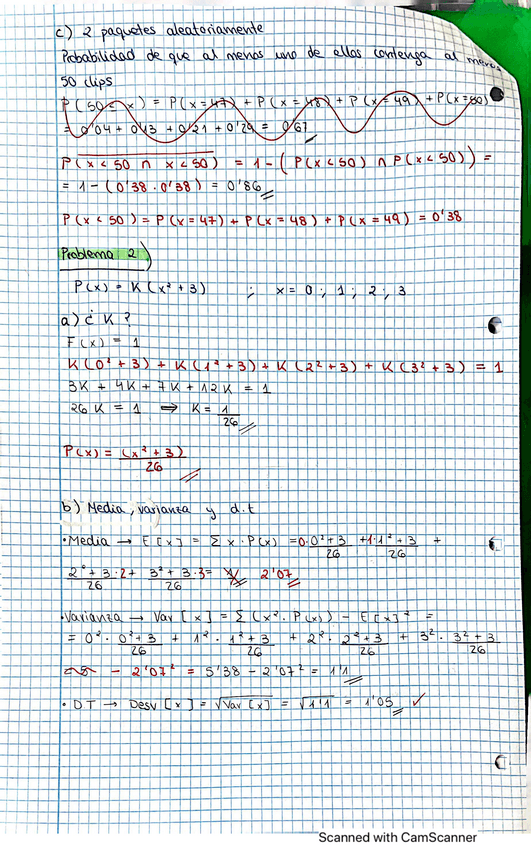 c) 2 paquetes aleatoriamente
Probabilidad de que al menos uno de ellos contenga al menos
50 clips
P(50 = x) = P(x=47) + P(x=48) + P(x=49) + P(x=50)
= 0'04 + 0'13 + 0'21 + 0'29 = 0'67
P(x < 50 ∩ x < 50) = 1 - (P(x<50) ∩ P(x<50)) =
= 1 - (0'38 · 0'38) = 0'86
P(x < 50) = P(x=47) + P(x=48) + P(x=49) = 0'38
Problema 2
P(x) = K(x² + 3) ; x = 0 ; 1 ; 2 ; 3
a) ¿ K ?
F(x) = 1
K(0² + 3) + K(1² + 3) + K(2² + 3) + K(3² + 3) = 1
3K + 4K + 7K + 12K = 1
26 K = 1 ⇒ K = 1/26
P(x) = (x² + 3)/26
b) Media, varianza y d.t
• Media → E[x] = Σ x · P(x) = 0·0²+3/26 + 1·1²+3/26 +
2²+3·2/26 + 3²+3·3/26 = 2'07
• Varianza → Var[x] = Σ(x² · P(x)) - E[x]² =
= 0² · 0²+3/26 + 1² · 1²+3/26 + 2² · 2²+3/26 + 3² · 3²+3/26
- 2'07² = 5'38 - 2'07² = 1'1
• DT → Desv[x] = √Var[x] = √1'1 = 1'05 ✓
Scanned with CamScanner